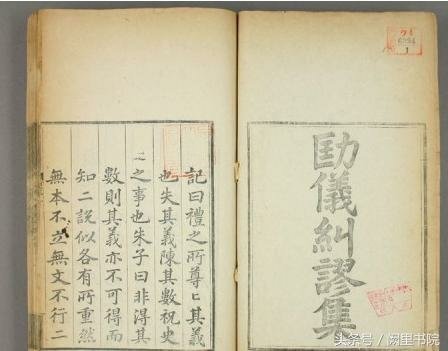 劻儀糾謬集
記曰禮之所尊尊其義
也失其義陳其數祝史
之事也朱子曰非得其
數則其義亦不可得而
知二說似各有所重然
無本不立無文不行二
1
头条号 / 阙里书院